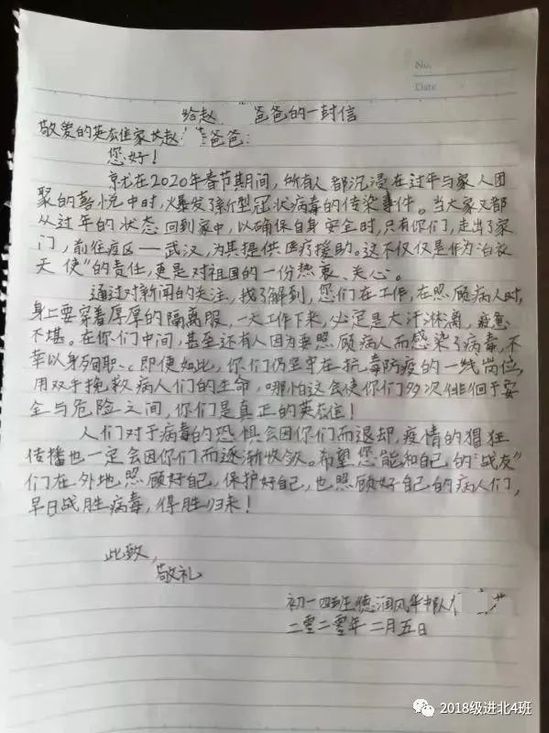 No.
Date
给赵 爸爸的一封信
敬爱的英雄家长赵 爸爸：
您好！
就在2020年春节期间，所有人都沉浸在过年与家人团
聚的喜悦中时，爆发了新型冠状病毒的传染事件。当大家又都
从过年的状态回到家中，以确保自身安全时，只有你们，走出了家
门，前往疫区——武汉，为其提供医疗援助。这不仅仅是作为“白衣
天使”的责任，更是对祖国的一份热衷、关心。
通过对新闻的关注，我了解到，您们在工作，在照顾病人时，
身上要穿着厚厚的隔离服，一天工作下来，必定是大汗淋漓，疲惫
不堪。在你们中间，甚至还有人因为要照顾病人而感染了病毒，不
幸以身殉职、。即便如此，你们仍坚守在抗毒防疫的一线岗位，
用双手挽救病人们的生命，哪怕这会使你们多次徘徊于安
全与危险之间，你们是真正的英雄！
人们对于病毒的恐惧会因你们而退却，疫情的猖狂
传播也一定会因你们而逐渐收敛。希望您能和自己的“战友”
们在外地照顾好自己，保护好自己，也照顾好自己的病人们，
早日战胜病毒，得胜归来！
此致，
敬礼
初一四班德润风华中队
二零二零年二月五日
2018级进北4班